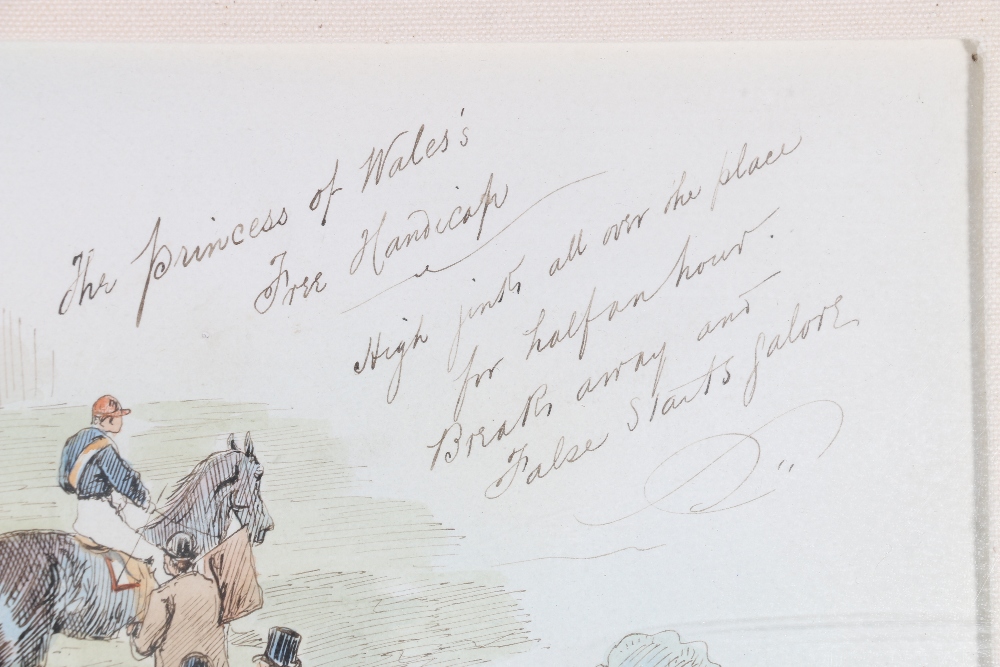 The Princess of Wales's
Free Handicap
High jinks all over the place
for half an hour.
Breaks away and
False Starts galore